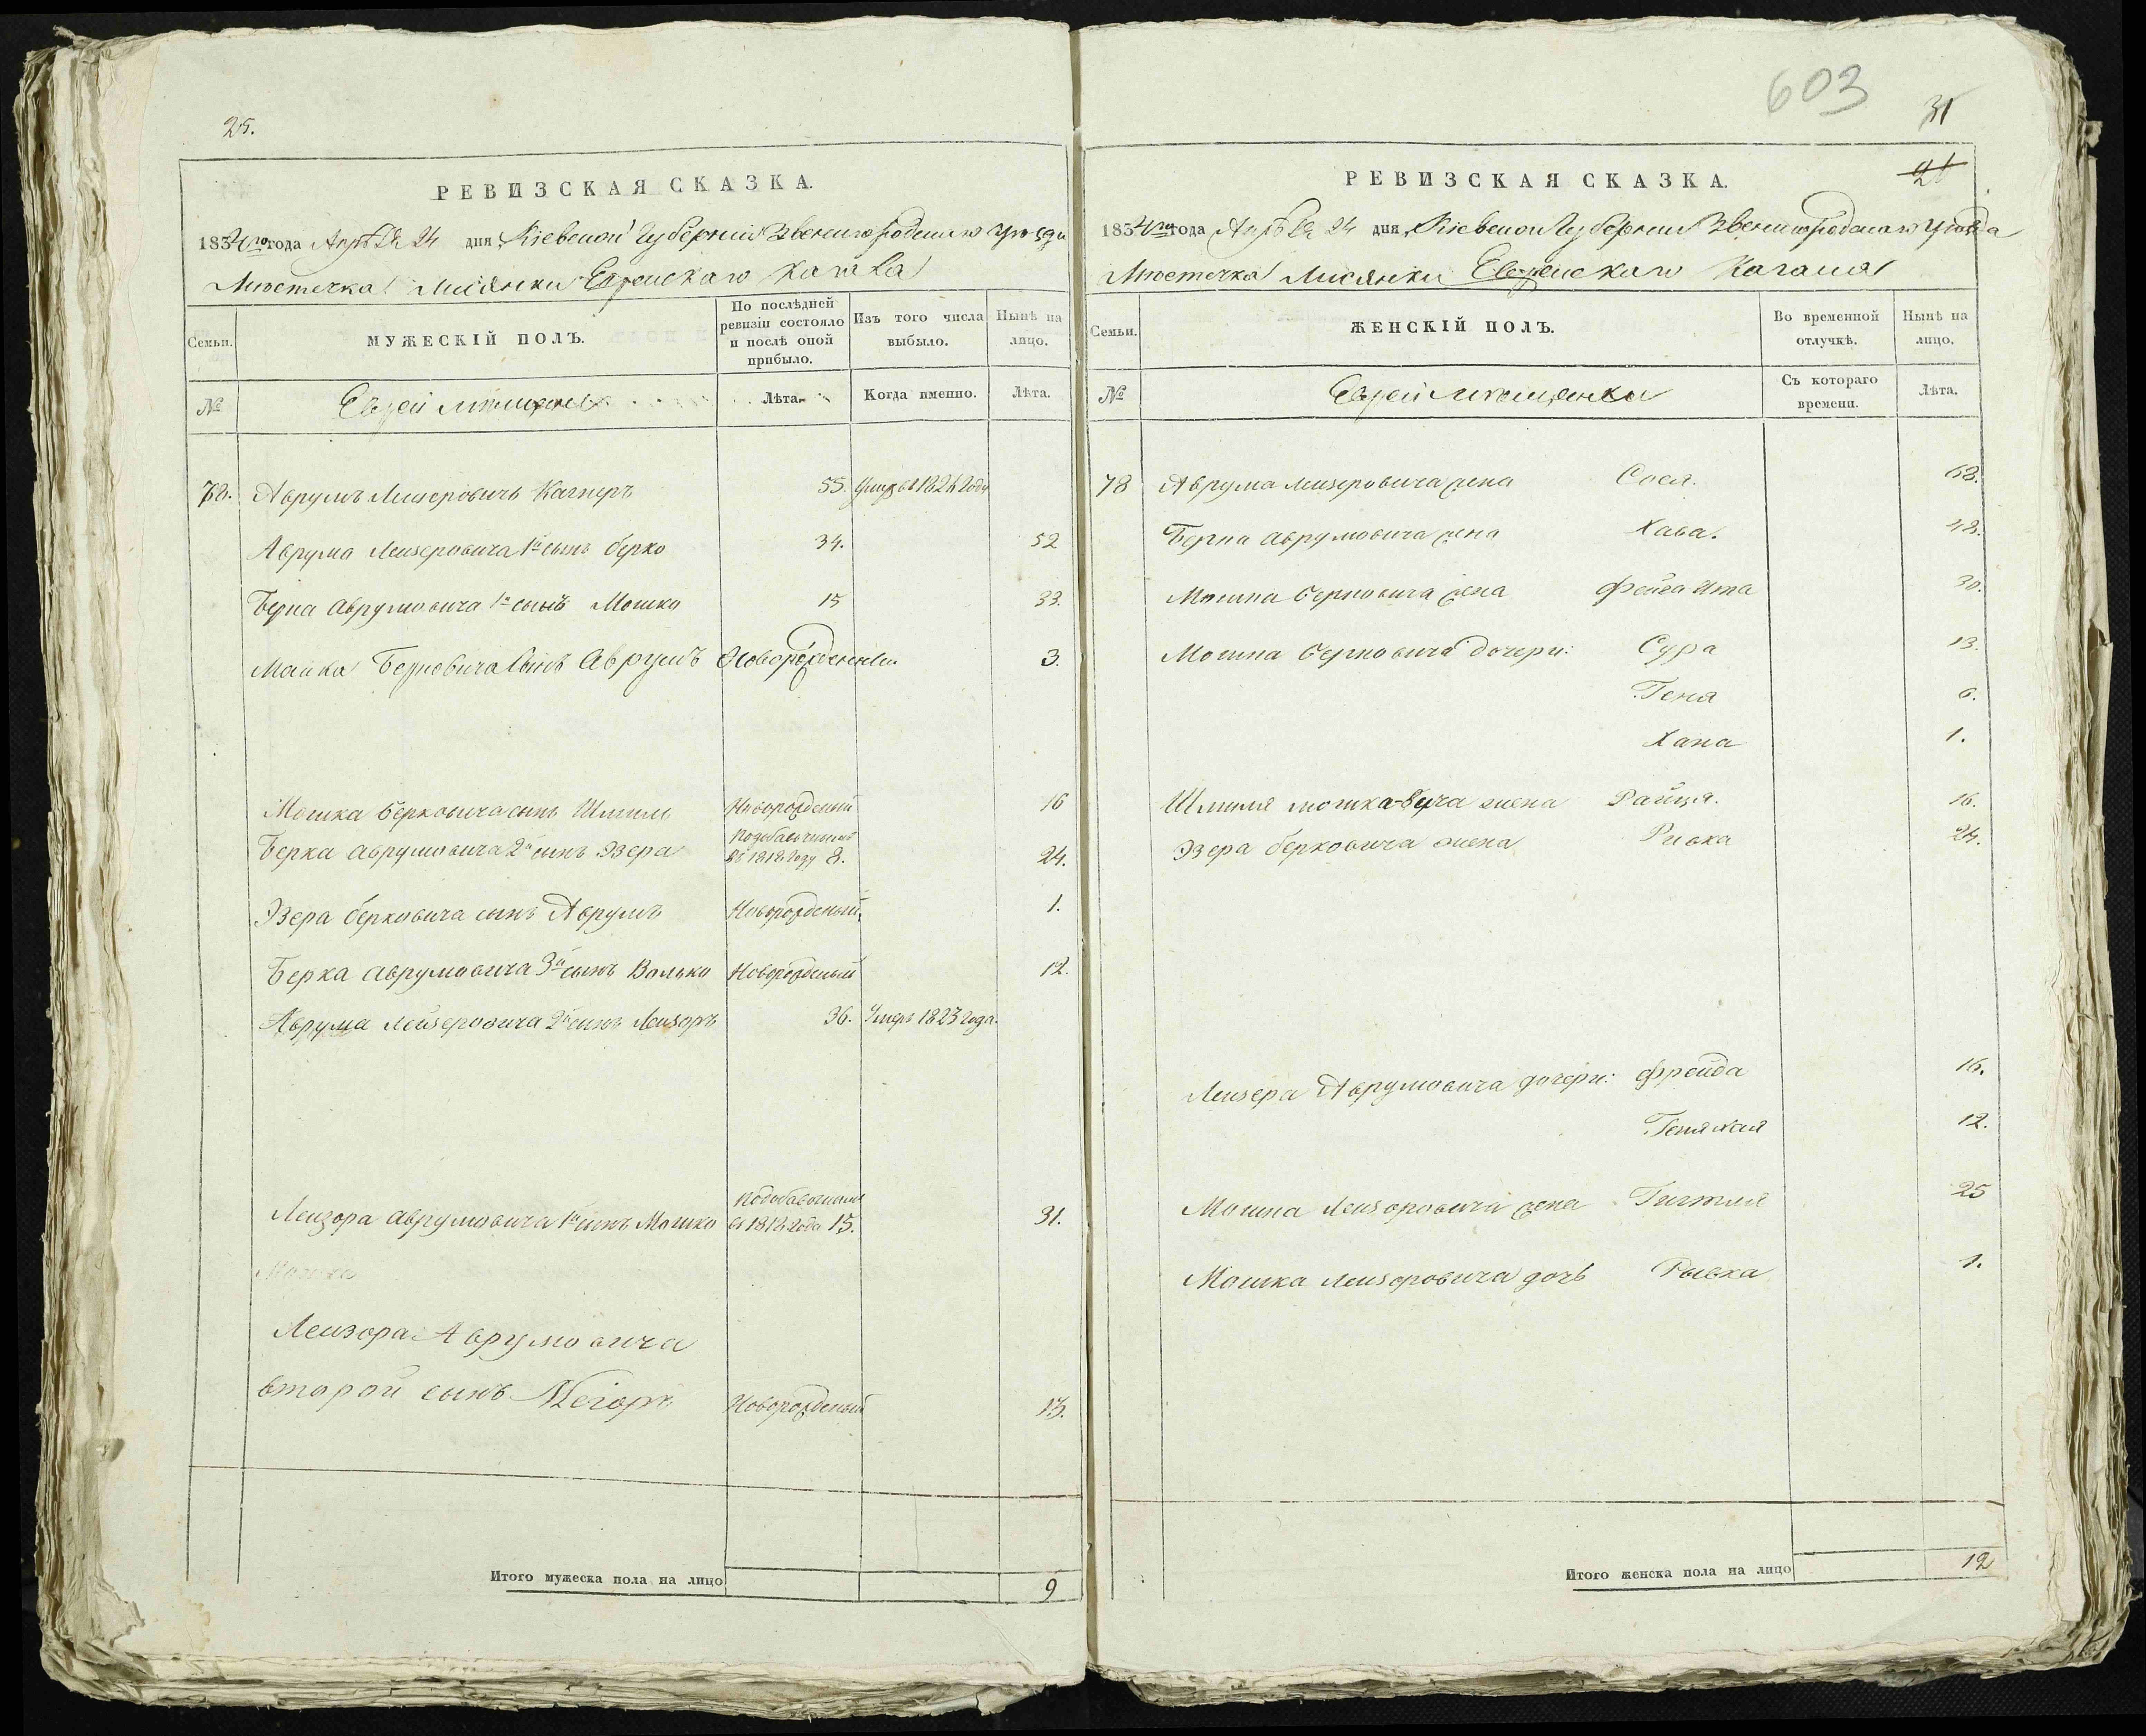 25.
РЕВИЗСКАЯ СКАЗКА.
1834го года Апреля 24 дня Кіевской Губерніи Звенигородскаго Уѣзда
Мѣстечка Лисянки Еврейскаго Кагала
Семьи.
МУЖЕСКІЙ ПОЛЪ.
По послѣдней ревизіи состояло и послѣ оной прибыло.
Изъ того числа выбыло.
Нынѣ на лицо.
№
Евреи мѣщане
Лѣта.
Когда именно.
Лѣта.
78. Аврумъ Лейзеровичъ 55. Умеръ
Аврума Лейзеровича 1й сынъ Берко 34. 52
Берка Аврумовича 1й сынъ Мошко 15 33.
Мошка Берковича сынъ Аврумъ Новорожденный 3.
Мошка Берковича сынъ Шмиль Новорожденый 16
Берка Аврумовича 2й сынъ Эзера По добавочнымъ въ 1818 году 8. 24.
Эзера Берковича сынъ Аврумъ Новорожденый 1.
Берка Аврумовича 3й сынъ Волько Новорожденый 12.
Аврума Лейзеровича 2й сынъ Лейзоръ 36. Умеръ 1823 года.
Лейзора Аврумовича 1й сынъ Мошко По добавочнымъ въ 1818 года 15. 31.
Мошка
Лейзора Аврумовича
второй сынъ Меіоръ Новорожденый 13.
Итого мужеска пола на лицо 9
603
31
21
РЕВИЗСКАЯ СКАЗКА.
1834го года Апреля 24 дня Кіевской Губерніи Звенигородскаго Уѣзда
Мѣстечка Лисянки Еврейскаго Кагала
Семьи.
ЖЕНСКІЙ ПОЛЪ.
Во временной отлучкѣ.
Нынѣ на лицо.
№
Евреи мѣщанки
Съ котораго времени.
Лѣта.
78 Аврума Лейзеровича жена Сося. 68.
Берка Аврумовича жена Хава. 48.
Мошка Берковича жена Фейга Ита 30.
Мошка Берковича дочери: Сура 13.
Геня 6.
Хана 1.
Шмиля Мошковича жена Райця. 16.
Эзера Берковича жена Ривка 24.
Лейзера Аврумовича дочери: Фрейда 16.
Геня Хая 12.
Мошка Лейзоровича жена Гитля 25
Мошка Лейзеровича дочь Рывка 1.
Итого женска пола на лицо 12